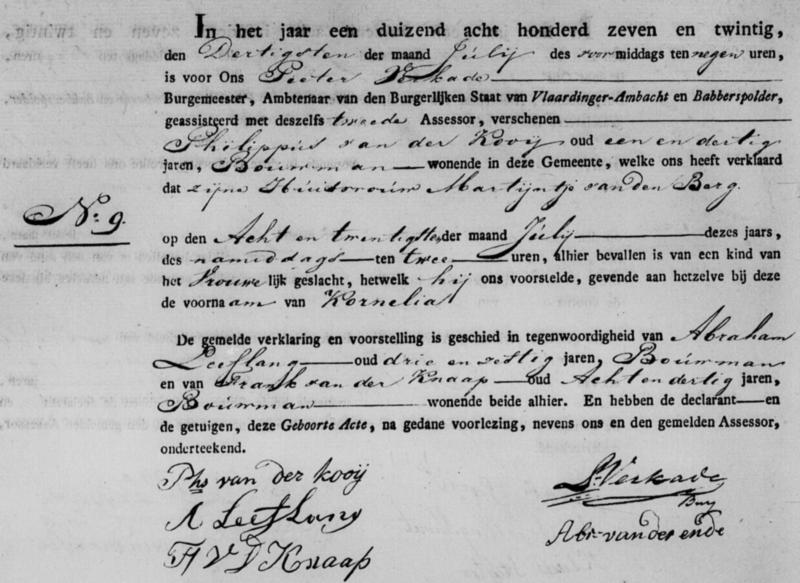 In het jaar een duizend acht honderd zeven en twintig,
den Dertigsten der maand Júlij des voormiddags ten negen uren,
is voor Ons Pieter Verkade
Burgemeester, Ambtenaar van den Burgerlijken Staat van Vlaardinger-Ambacht en Babberspolder,
geassisteerd met deszelfs tweede Assessor, verschenen
Philippus van der Kooij oud een en dertig
jaren, Bouwman wonende in deze Gemeente, welke ons heeft verklaard
dat zijne Huisvrouw Martijntje van den Berg.
No. 9.
op den Acht en twintigste der maand Júlij dezes jaars,
des namiddags ten twee uren, alhier bevallen is van een kind van
het Vrouwelijk geslacht, hetwelk hij ons voorstelde, gevende aan hetzelve bij deze
de voornaam van Kornelia
De gemelde verklaring en voorstelling is geschied in tegenwoordigheid van Abraham
Leeflang oud drie en zestig jaren, Boúwman
en van Frank van der Knaap oud Acht en dertig jaren,
Boúwman wonende beide alhier. En hebben de declarant en
de getuigen, deze Geboorte Acte, na gedane voorlezing, nevens ons en den gemelden Assessor,
onderteekend.
Phs van der kooij
A Leeflang
F V D Knaap
P. Verkade
Burg
Abr. van der ende